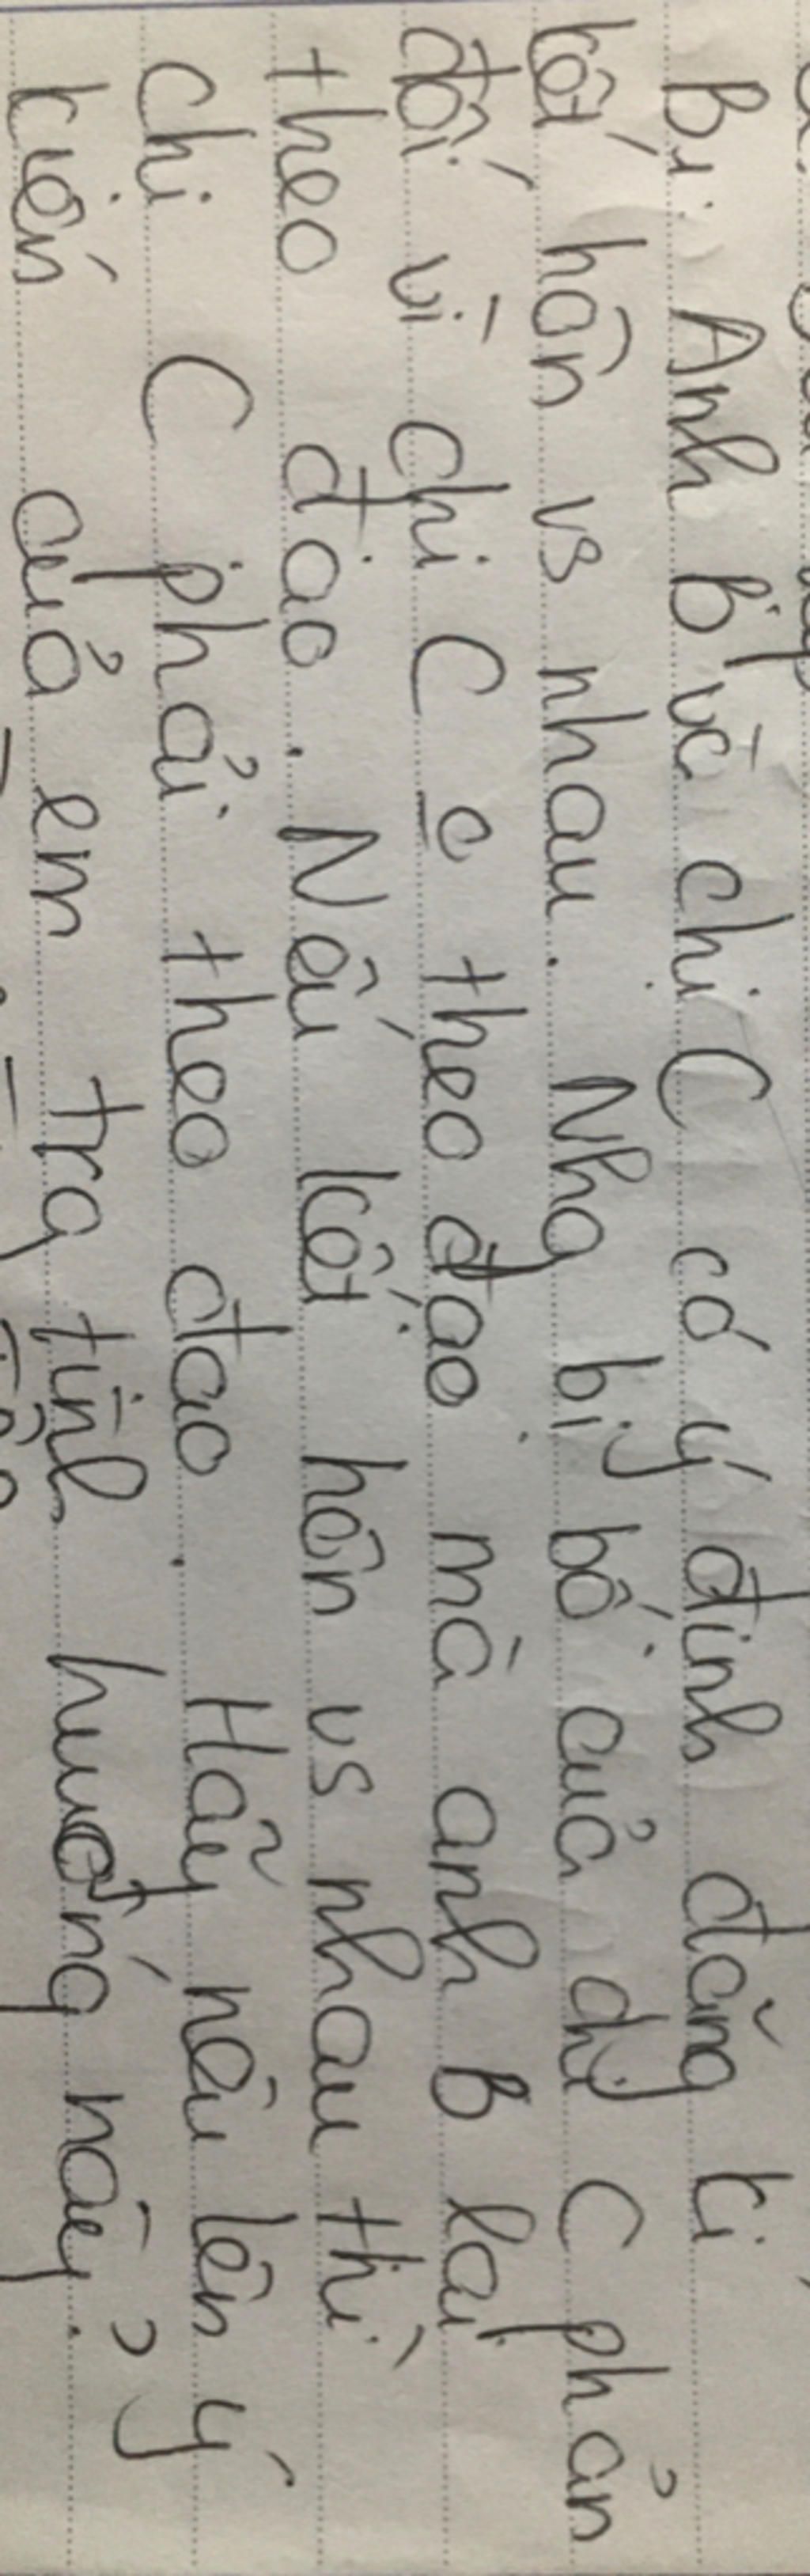 Bị. Anh B và chị C có ý định đăng kí
kết hôn vs nhau. Nhg bị bố của chị C phản
đối vì chị C o theo đạo mà anh B lại
theo đạo. Nếu kết hôn vs nhau thì
chị C phải theo đạo. Hãy nêu lên ý
kiến của em trg tình huống này?